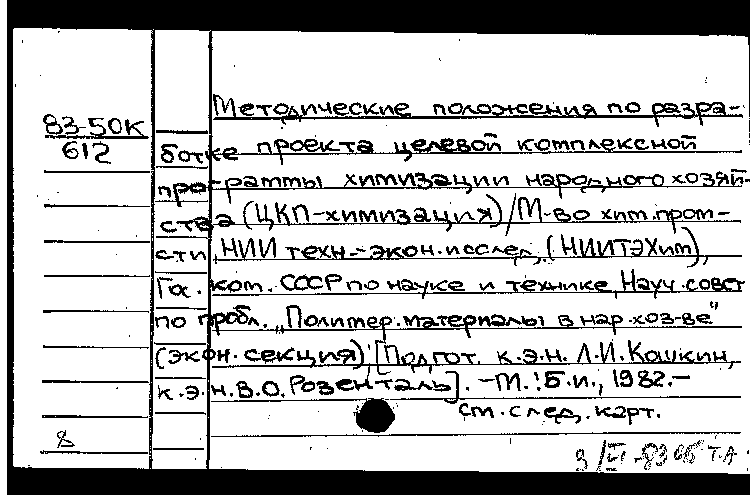 Методические положения по разра-
83-50К
612
ботке проекта целевой комплексной
программы химизации народного хозяй-
ства (ЦКП-химизация)/М-во хим.пром-
сти, НИИ техн.-экон.исслед. (НИИТЭХим),
Гос. ком. СССР по науке и технике, Науч.совет
по пробл. „Полимер.материалы в нар.хоз-ве"
(экон.секция); [Подгот. к.э.н. Л.И.Кашкин,
к.э.н. В.О.Розенталь]. -М.: Б.и., 1982.-
см. след. карт.
8
3/VI-83 Т.А.